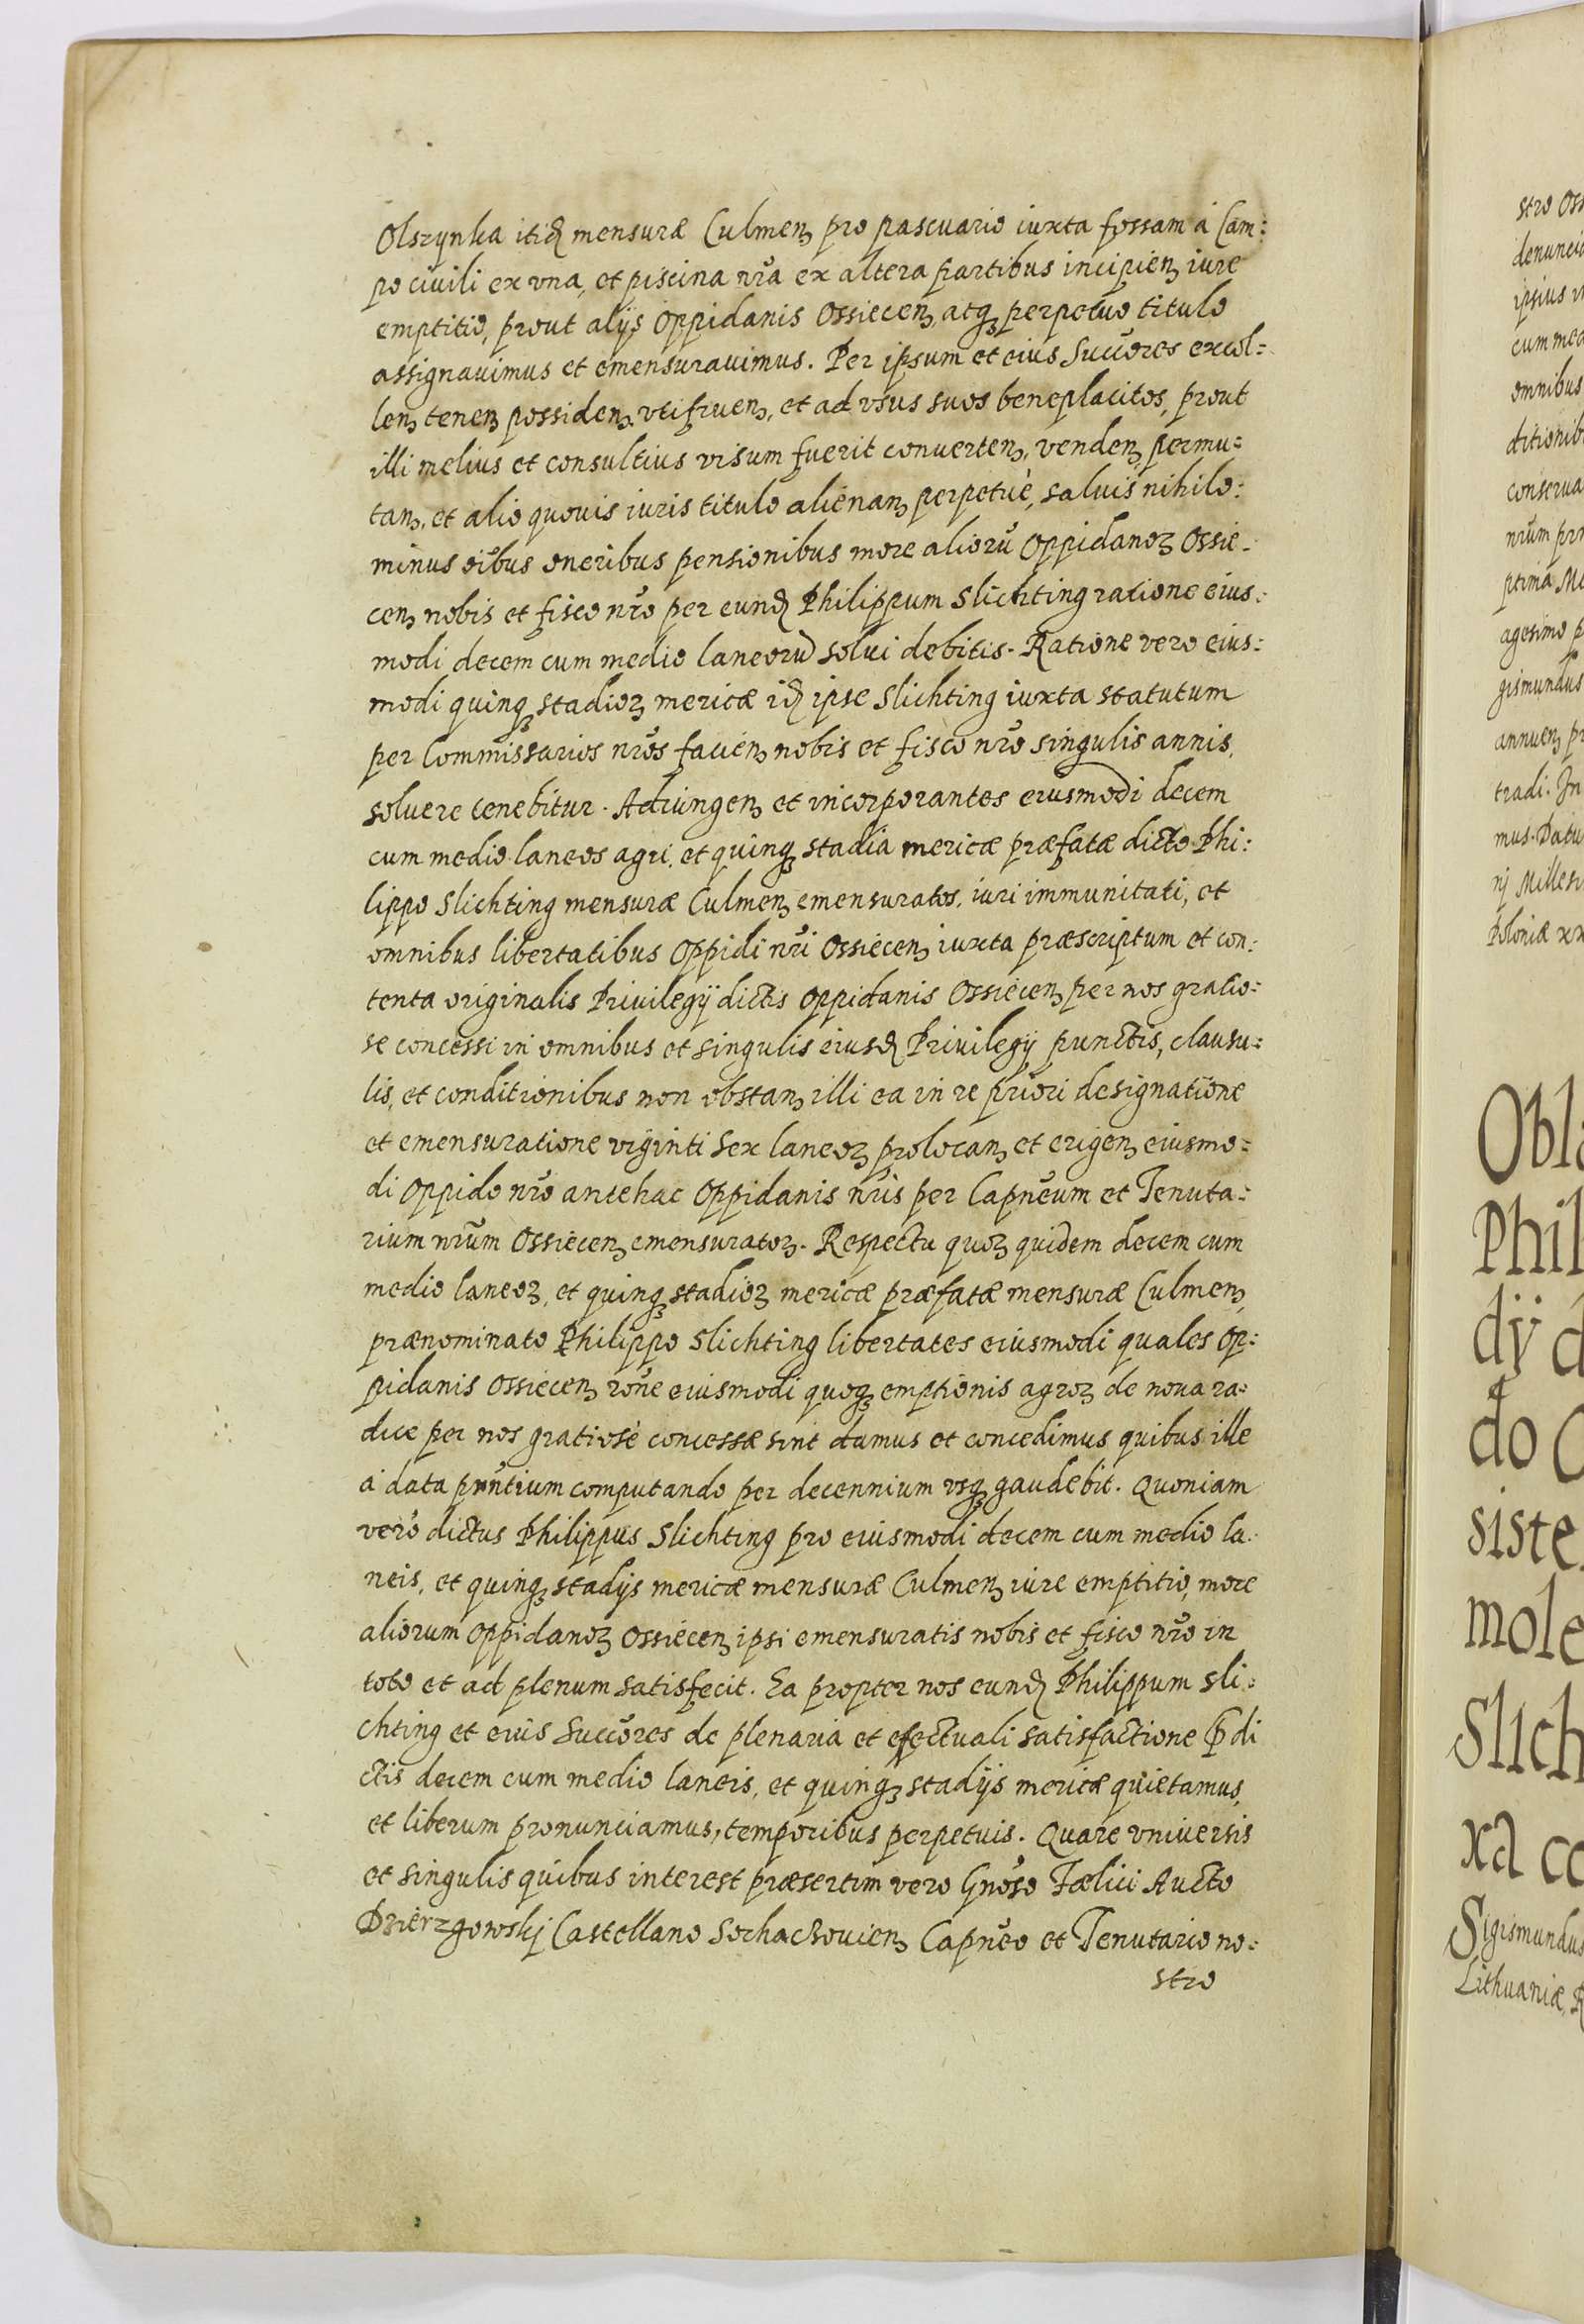 Olszynka itiđ mensuræ Culmenȝ pro pascuario iuxta fossam à Cam:
po ciuili ex vna, et piscina nr̃a ex altera partibus incipienȝ iure
emptitio, prout alijs Oppidanis Ossiecenȝ, atqȝ perpetuo titulo
assignauimus et emensurauimus. Per ipsum et eius Succõres excol:
lenȝ tenenȝ possidenȝ vtifruenȝ, et ad vsus suos beneplacitos, prout
illi melius et consultius visum fuerit conuertenȝ, vendenȝ permu:
tanȝ, et alio quouis iuris titulo alienanȝ perpetuè, saluis nihilo:
minus oĩbus oneribus pensionibus more aliorũ Oppidanoȝ Ossie:
cenȝ nobis et fisco nr̃o per eunđ Philippum Slichting ratione eius:
modi decem cum medio laneorũ solui debitis. Ratione vero eius:
modi quinqȝ stadioȝ mericæ iđ ipse Slichting iuxta statutum
per Commissarios nr̃os facienȝ nobis et fisco nr̃o singulis annis,
soluere tenebitur. Adiungenȝ et incorporantes eiusmodi decem
cum medio laneos agri, et quinqȝ stadia mericæ præfatæ dicto Phi:
lippo Slichting mensuræ Culmenȝ emensuratos, iuri immunitati, et
omnibus libertatibus Oppidi nr̃i Ossiecenȝ iuxta præscriptum et con:
tenta originalis Priuilegij dictis Oppidanis Ossiecenȝ per nos gratio:
se concessi in omnibus et singulis eiusđ Priuilegij punctis, clausu:
lis, et conditionibus non obstanȝ illi ea in re priori designatione
et emensuratione viginti Sex laneoȝ prolocanȝ et erigenȝ eiusmo:
di Oppido nr̃o antehac Oppidanis nr̃is per Capneũm et Tenuta:
rium nr̃um Ossiecenȝ emensuratoȝ. Respectu quoȝ quidem decem cum
medio laneoȝ, et quinqȝ stadioȝ mericæ præfatæ mensuræ Culmenȝ,
prænominato Philippo Slichting libertates eiusmodi quales Op:
pidanis Ossiecenȝ rõne eiusmodi quoqȝ emptionis agroȝ de noua ra:
dice per nos gratiosè concessæ sint damus et concedimus quibus ille
à data pñtium computando per decennium vsqȝ gaudebit. Quoniam
verò dictus Philippus Slichting pro eiusmodi decem cum medio la:
neis, et quinqȝ stadijs mericæ mensuræ Culmenȝ iure emptitio, more
aliorum Oppidanoȝ Ossiecenȝ ipsi emensuratis nobis et fisco nr̃o in
toto et ad plenum satisfecit. Ea propter nos eunđ Philippum Sli:
chting et eius Succõres de plenaria et efectuali satisfactione p̃di
ctis decem cum medio laneis, et quinqȝ stadijs mericæ quietamus,
et liberum pronunciamus, temporibus perpetuis. Quare vniuersis
et singulis quibus interest præsertim vero Gnõso Fœlici Aucto
Dzierzgowskj Castellano Sochaczouienȝ Capneõ et Tenutario no:
stro